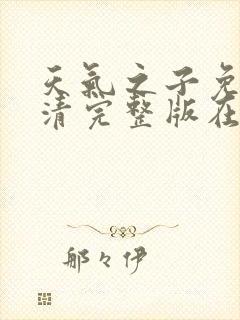 天氣之子免
清完整版在
那々伊